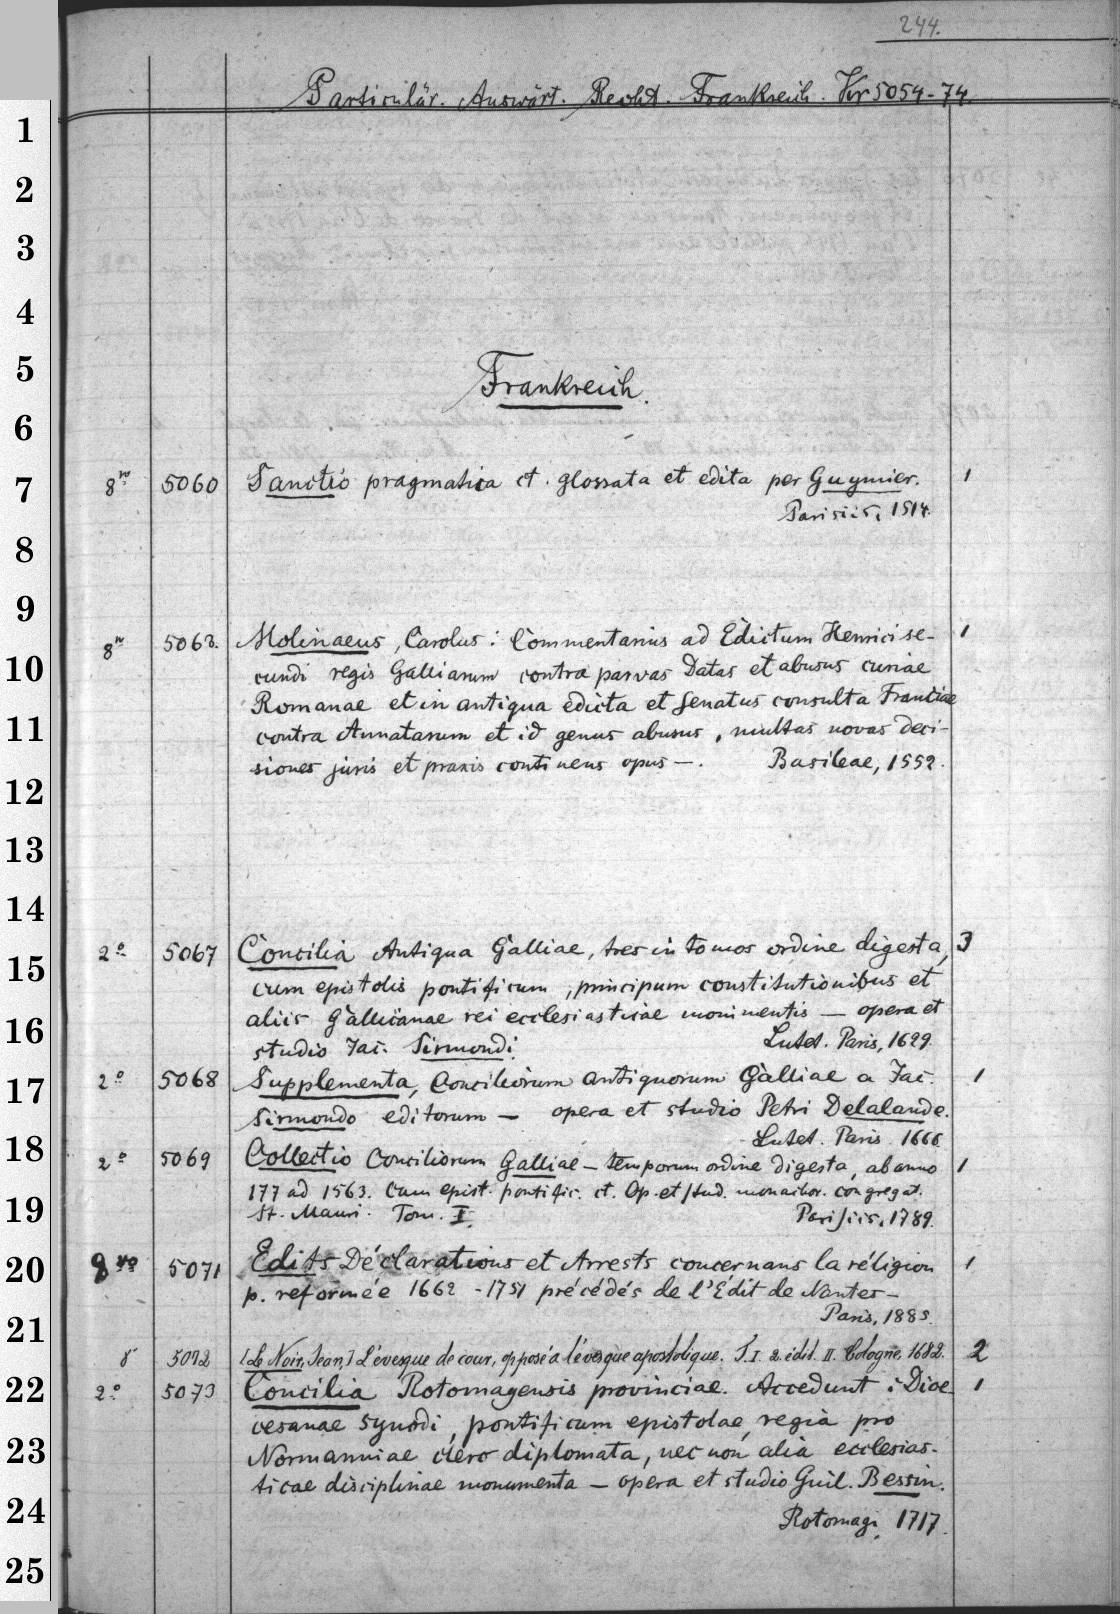 244.
Particulär. Auswärt. Recht. Frankreich. Kr 5054-74.
1
2
3
4
5
Frankreich.
6
7 8ᵛᵒ 5060 Sanctio pragmatica ct. glossata et edita per Guymier. 1
Parisiis, 1514.
8
9
8ᵛᵒ 5063. Molinaeus, Carolus: Commentarius ad Edictum Henrici se- 1
10 cundi regis Galliarum contra parvas Datas et abusus curiae
Romanae et in antiqua edicta et Senatus consulta Franciae
11 contra Annatarum et id genus abusus, multas novas deci-
siones juris et praxis continens opus —. Basileae, 1552.
12
13
14
2° 5067 Concilia Antiqua Galliae, tres in tomos ordine digesta, 3
15 cum epistolis pontificum, principum constitutionibus et
aliis Gallicanae rei ecclesiasticae monimentis — opera et
16 studio Jac. Sirmondi. Lutet. Paris, 1629.
17 2° 5068 Supplementa, Conciliorum antiquorum Galliae a Jac. 1
Sirmondo editorum — opera et studio Petri Delalande.
Lutet. Paris. 1666
18 2° 5069 Collectio Conciliorum Galliae — temporum ordine digesta, ab anno 1
177 ad 1563. Cum epist. pontific. ct. Op. et stud. monachor. congregat.
19 St. Mauri. Tom. I. Parisiis, 1789.
20 8ᵛᵒ 5071 Edits Déclarations et Arrests concernans la réligion 1
p. reformée 1662 -1751 précédés de l'Édit de Nantes—
21 Paris, 1885.
8° 5072 [Le Noir, Jean,] L'évesque de cour, opposé a lévesque apostolique. T. I. 2. édit. II. Cologne, 1682. 2
22 2° 5073 Concilia Rotomagensis provinciae. Accedunt: Dioe 1
cesanae synodi, pontificum epistolae, regia pro
23 Normanniae clero diplomata, nec non alia ecclesias-
ticae disciplinae monumenta — opera et studio Guil. Bessin.
24 Rotomagi, 1717.
25